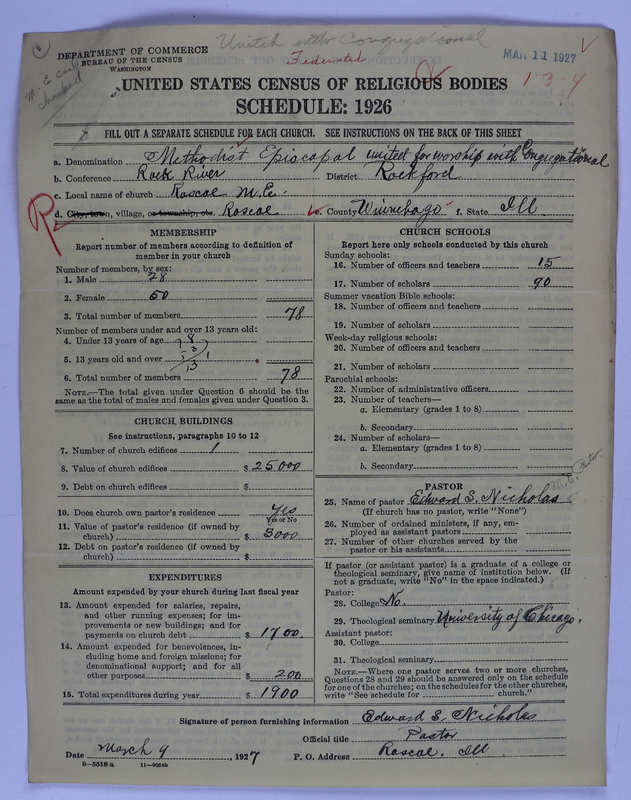 Unitch with Congregational
DEPARTMENT OF COMMERCE
BUREAU OF THE CENSUS
WASHINGTON
Federated
MAR 11 1927
M. E. Card
Checked
1-3-4
UNITED STATES CENSUS OF RELIGIOUS BODIES
SCHEDULE: 1926
FILL OUT A SEPARATE SCHEDULE FOR EACH CHURCH. SEE INSTRUCTIONS ON THE BACK OF THIS SHEET
a. Denomination Methodist Episcopal united for worship with Congregational
b. Conference Rock River District Rockford
c. Local name of church Roscoe M.E.
R
d. City, town, village, or township, etc. Roscoe e. County Winnebago f. State Ill
MEMBERSHIP
Report number of members according to definition of member in your church
Number of members, by sex:
1. Male 28
2. Female 50
3. Total number of members 78
Number of members under and over 13 years old:
4. Under 13 years of age
5. 13 years old and over
6. Total number of members 78
NOTE.—The total given under Question 6 should be the
same as the total of males and females given under Question 3.
CHURCH BUILDINGS
See instructions, paragraphs 10 to 12
7. Number of church edifices 1
8. Value of church edifices $ 25000
9. Debt on church edifices $
10. Does church own pastor's residence Yes
Yes or No
11. Value of pastor's residence (if owned by
church) $ 3000
12. Debt on pastor's residence (if owned by
church) $
EXPENDITURES
Amount expended by your church during last fiscal year
13. Amount expended for salaries, repairs,
and other running expenses; for im-
provements or new buildings; and for
payments on church debt $ 1700
14. Amount expended for benevolences, in-
cluding home and foreign missions; for
denominational support; and for all
other purposes $ 200
15. Total expenditures during year $ 1900
CHURCH SCHOOLS
Report here only schools conducted by this church
Sunday schools:
16. Number of officers and teachers 15
17. Number of scholars 90
Summer vacation Bible schools:
18. Number of officers and teachers
19. Number of scholars
Week-day religious schools:
20. Number of officers and teachers
21. Number of scholars
Parochial schools:
22. Number of administrative officers
23. Number of teachers—
a. Elementary (grades 1 to 8)
b. Secondary
24. Number of scholars—
a. Elementary (grades 1 to 8)
b. Secondary
PASTOR
M.E. Pastor
25. Name of pastor Edward S. Nicholas
(If church has no pastor, write "None")
26. Number of ordained ministers, if any, em-
ployed as assistant pastors
27. Number of other churches served by the
pastor or his assistants
If pastor (or assistant pastor) is a graduate of a college or
theological seminary, give name of institution below. (If
not a graduate, write "No" in the space indicated.)
Pastor:
28. College No
29. Theological seminary University of Chicago.
Assistant pastor:
30. College
31. Theological seminary
NOTE.—Where one pastor serves two or more churches,
Questions 28 and 29 should be answered only on the schedule
for one of the churches; on the schedules for the other churches,
write "See schedule for church."
Signature of person furnishing information Edward S. Nicholas
Official title Pastor
Date March 9, 1927 P. O. Address Roscoe, Ill
8-5518a 11-9054b